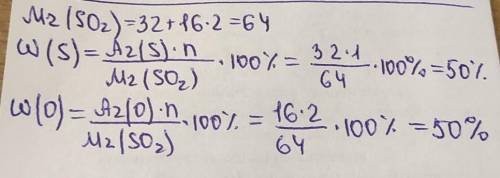 Mr(SO₂)=32+16·2=64
W(S)=Ar(S)·n/Mr(SO₂)·100%=32·1/64·100%=50%.
W(O)=Ar(O)·n/Mr(SO₂)·100%=16·2/64·100%=50%